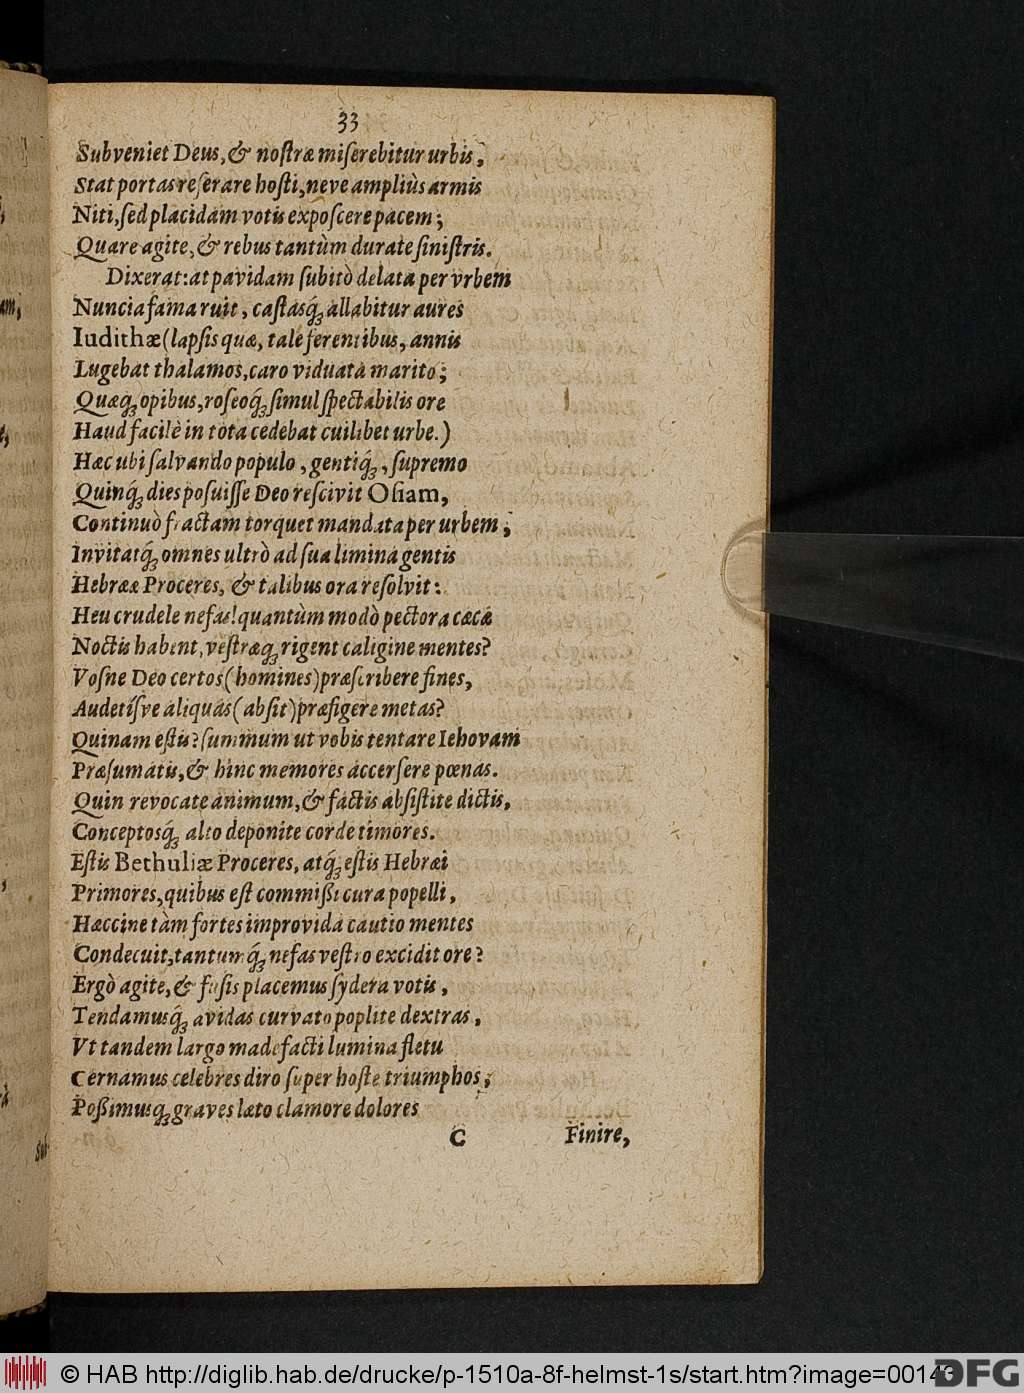 33
Subveniet Deus, & nostræ miserebitur urbis,
Stat portas reserare hosti, neve ampliùs armis
Niti, sed placidam votis exposcere pacem;
Quare agite, & rebus tantùm durate sinistris.
Dixerat: at pavidam subitò delata per vrbem
Nuncia fama ruit, castasq́; allabitur aures
Iudithæ (lapsis quæ, tale ferentibus, annis
Lugebat thalamos, caro viduata marito;
Quæq́; opibus, roseoq́; simul spectabilis ore
Haud facilè in tota cedebat cuilibet urbe.)
Hæc ubi salvando populo, gentiq́;, supremo
Quinq́; dies posuisse Deo rescivit Osiam,
Continuò fractam torquet mandata per urbem;
Invitatq́; omnes ultrò ad sua limina gentis
Hebrææ Proceres, & talibus ora resolvit:
Heu crudele nefas! quantùm modò pectora cæcæ
Noctis habent, vestræq; rigent caligine mentes?
Vosne Deo certos (homines) præscribere fines,
Audetísve aliquas (absit) præfigere metas?
Quinam estis? summum ut vobis tentare Iehovam
Præsumatis, & hinc memores accersere pœnas.
Quin revocate animum, & factis absistite dictis,
Conceptosq́; alto deponite corde timores.
Estis Bethuliæ Proceres, atq́; estis Hebræi
Primores, quibus est commißi cura popelli,
Hæccine tàm fortes improvida cautio mentes
Condecuit, tantumq́; nefas vestro excidit ore?
Ergò agite, & fusis placemus sydera votis,
Tendamusq́; avidas curvato poplite dextras,
Vt tandem largo madefacti lumina fletu
Cernamus celebres diro super hoste triumphos;
Poßimusq; graves læto clamore dolores
C Finire,
© HAB http://diglib.hab.de/drucke/p-1510a-8f-helmst-1s/start.htm?image=00143
DFG